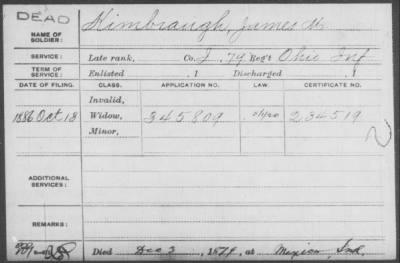 DEAD
NAME OF SOLDIER: Kimbraugh, James
SERVICE: Late rank, Co. I, 79 Reg't Ohio Inf
TERM OF SERVICE: Enlisted , 1 Discharged , 1
DATE OF FILING. CLASS. APPLICATION NO. LAW. CERTIFICATE NO.
Invalid,
1886 Oct 18 Widow, 345809 234519
Minor,
ADDITIONAL SERVICES:
REMARKS:
Died Dec 3, 1874, at Mexico, Ind.